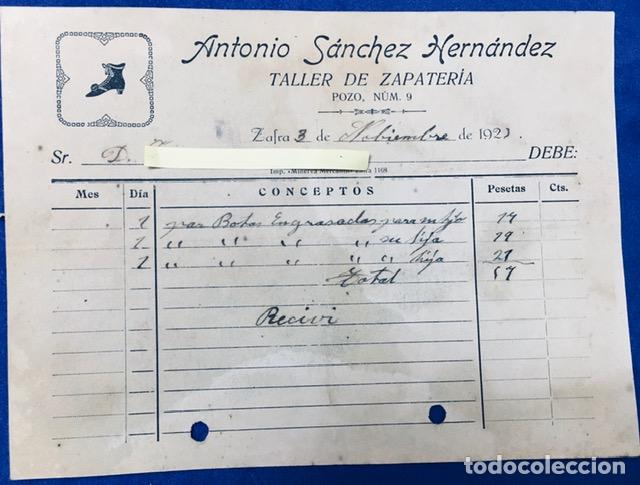 Antonio Sánchez Hernández
TALLER DE ZAPATERÍA
POZO, NÚM. 9
Zafra 3 de Nobiembre de 1923.
Sr. D. DEBE:
Imp. «Minerva Mercantil» Zafra 1168
Mes Día CONCEPTOS Pesetas Cts.
1 par Botas Engrasadas para un hijo 19
1 " " " " su hija 19
1 " " " " " hija 21
Total 57
Recivi
todocoleccion.net